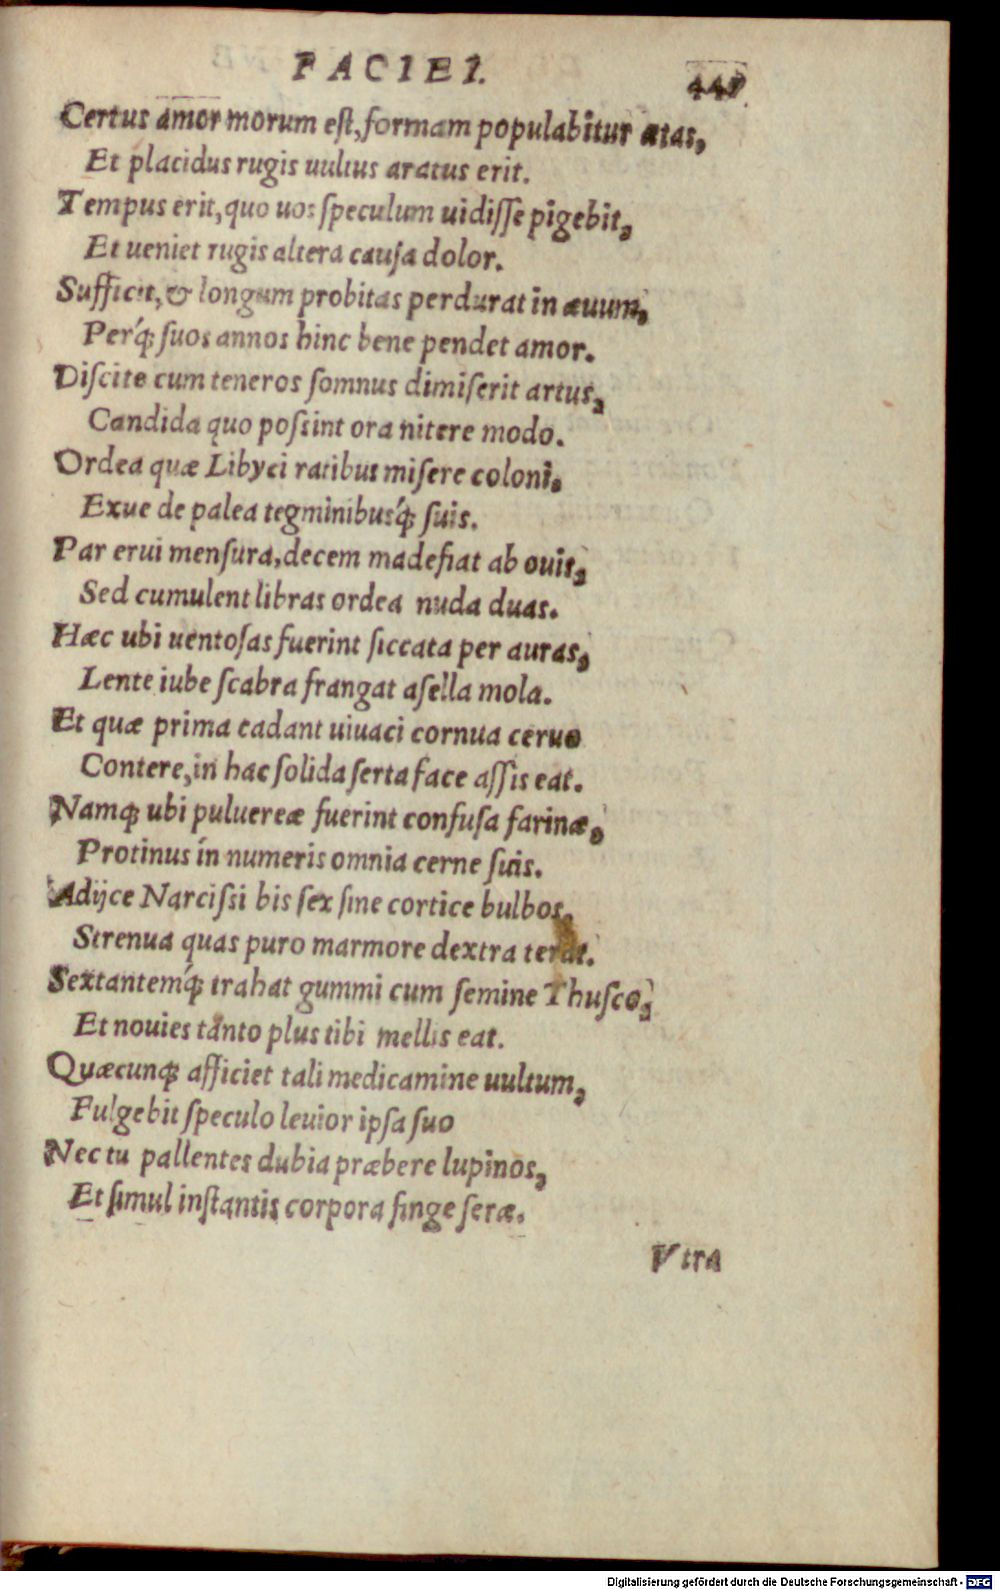 FACIEI.
Certus amor morum est, formam populabitur ætas,
Et placidus rugis uultus aratus erit.
Tempus erit, quo uos speculum uidisse pigebit,
Et ueniet rugis altera causa dolor.
Sufficit, & longum probitas perdurat in æuum,
Perq́; suos annos hinc bene pendet amor.
Discite cum teneros somnus dimiserit artus,
Candida quo possint ora nitere modo.
Ordea quæ Libyci ratibus misere coloni,
Exue de palea tegminibusq́; suis.
Par erui mensura, decem madefiat ab ouis,
Sed cumulent libras ordea nuda duas.
Hæc ubi uentosas fuerint siccata per auras,
Lente iube scabra frangat asella mola.
Et quæ prima cadant uiuaci cornua ceruo
Contere, in hac solida serta face assis eat.
Namq; ubi puluereæ fuerint confusa farinæ,
Protinus in numeris omnia cerne suis.
Adijce Narcissi bis sex sine cortice bulbos,
Strenua quas puro marmore dextra terat.
Sextantemq́; trahat gummi cum semine Thusco,
Et nouies tanto plus tibi mellis eat.
Quæcunq; afficiet tali medicamine uultum,
Fulgebit speculo leuior ipsa suo
Nec tu pallentes dubia præbere lupinos,
Et simul instantis corpora finge feræ.
Vtra
Digitalisierung gefördert durch die Deutsche Forschungsgemeinschaft - DFG